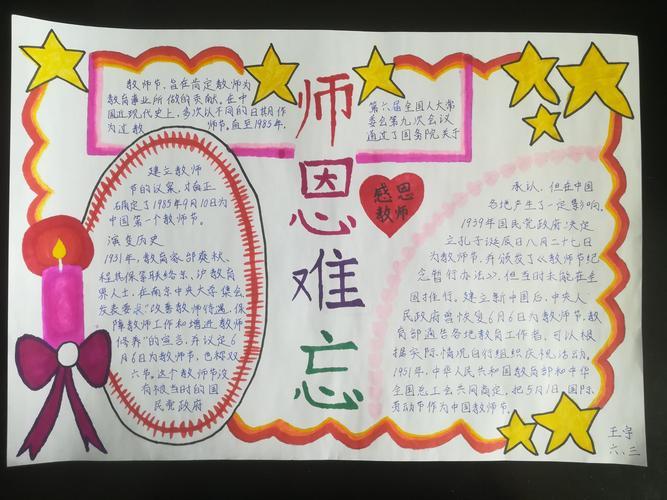 师恩难忘
教师节，旨在肯定教师为
教育事业所做的贡献。在中
国近现代史上，多次以不同的日期作
为过教师节。直至1985年，
第六届全国人大常
委会第九次会议
通过了国务院关于
建立教师
节的议案，才真正
确定了1985年9月10日为
中国第一个教师节。
演变历史
1931年，教育家邰爽秋、
程其保等联络京、沪教育
界人士，在南京中央大学集会，
发表要求"改善教师待遇，保
障教师工作和增进教师
修养"的宣言，并议定6
月6日为教师节，也称双
六节。这个教师节没
有被当时的国
民党政府
感恩
教师
承认，但在中国
各地产生了一定影响。
1939年国民党政府决定
立孔子诞辰日八月二十七日
为教师节，并颁发了《教师节纪
念暂行办法》，但当时未能在全
国推行。建立新中国后，中央人
民政府曾恢复6月6日为教师节，教
育部通告各地教育工作者，可以根
据实际情况自行组织庆祝活动。
1951年，中华人民共和国教育部和中华
全国总工会共同商定，把5月1日国际
劳动节作为中国教师节。
王宇
六、三